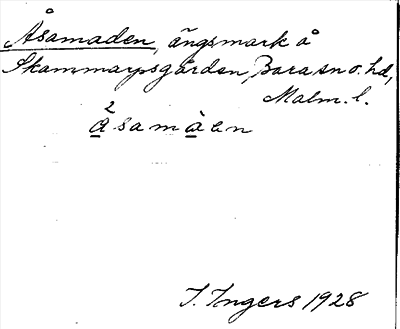 Åsamaden, ängsmark å
Skammarpsgården, Bara sn o. hd,
Malm. l.
2
åsamàen
I. Ingers 1928